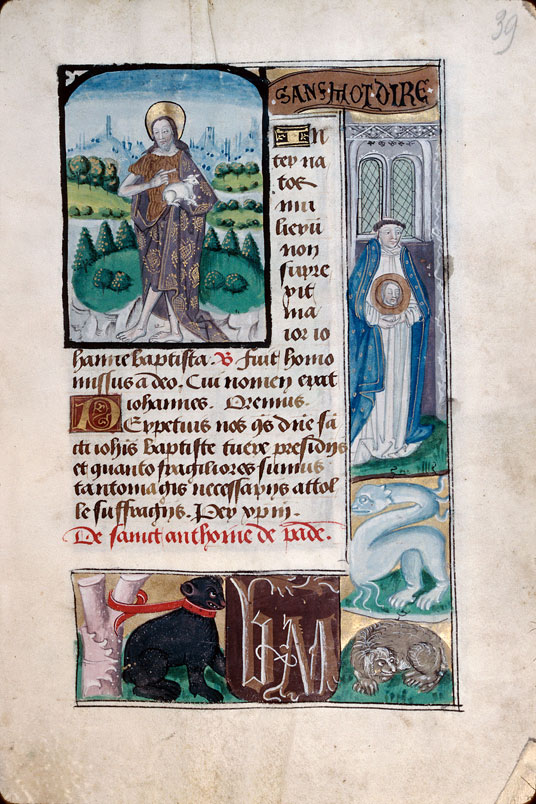 39
SANS MOT DIRE
In
ter na
tos
mu
lieru
non
surre
xit
ma
ior io
hanne baptista. V. fuit homo
missus a deo. Cui nomen erat
iohannes. Oremus.
Perpetuis nos qs dne sa
cti iohis baptiste tuere presidijs
et quanto fragiliores sumus
tanto magis necessarijs attol
le suffragijs. Per xpm.
De sainct anthoine de pade.